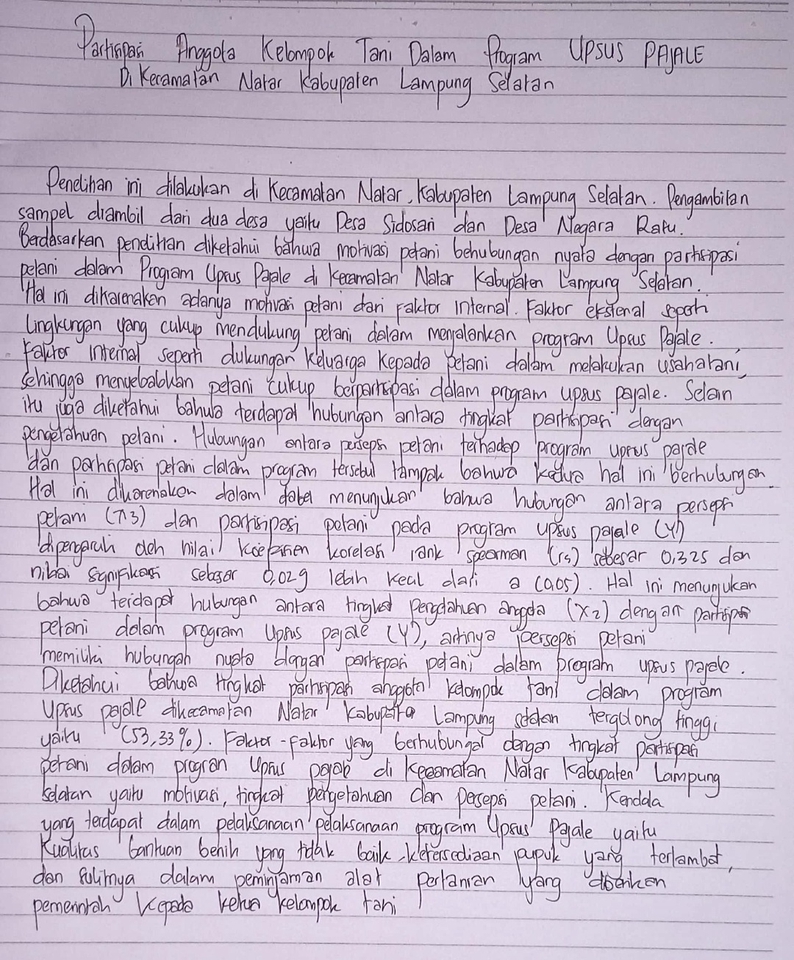 Partisipasi Anggota Kelompok Tani Dalam Program UPSUS PAJALE
Di Kecamatan Natar Kabupaten Lampung Selatan
Penelitian ini dilakukan di Kecamatan Natar, Kabupaten Lampung Selatan. Pengambilan
sampel diambil dari dua desa yaitu Desa Sidosari dan Desa Negara Ratu.
Berdasarkan penelitian diketahui bahwa motivasi petani behubungan nyata dengan partisipasi
petani dalam Program Upsus Pajale di Kecamatan Natar Kabupaten Lampung Selatan.
Hal ini dikarenakan adanya motivasi petani dari faktor internal. Faktor eksternal seperti
lingkungan yang cukup mendukung petani dalam menjalankan program Upsus Pajale.
Faktor internal seperti dukungan keluarga kepada petani dalam melakukan usahatani,
sehingga menyebabkan petani cukup berpartisipasi dalam program upsus pajale. Selain
itu juga diketahui bahwa terdapat hubungan antara tingkat partisipasi dengan
pengetahuan petani. Hubungan antara persepsi petani terhadap program upsus pajale
dan partisipasi petani dalam program tersebut tampak bahwa kedua hal ini berhubungan.
Hal ini dikarenakan dalam tabel menunjukan bahwa hubungan antara persepsi
petani (X3) dan partisipasi petani pada program upsus pajale (Y)
dipengaruhi oleh nilai koefisien korelasi rank spearman (rs) sebesar 0,325 dan
nilai signifikasi sebesar 0,029 lebih kecil dari a (0,05). Hal ini menunjukan
bahwa terdapat hubungan antara tingkat pengetahuan anggota (X2) dengan partisipasi
petani dalam program Upsus pajale (Y), artinya persepsi petani
memiliki hubungan nyata dengan partisipasi petani dalam program upsus pajale.
Diketahui bahwa tingkat partisipasi anggota kelompok tani dalam program
Upsus pajale dikecamatan Natar Kabupaten Lampung selatan tergolong tinggi
yaitu (53,33%). Faktor-faktor yang berhubungan dengan tingkat partisipasi
petani dalam program Upsus pajale di kecamatan Natar Kabupaten Lampung
selatan yaitu motivasi, tingkat pengetahuan dan persepsi petani. Kendala
yang terdapat dalam pelaksanaan pelaksanaan program Upsus Pajale yaitu
Kualitas bantuan benih yang tidak baik, ketersediaan pupuk yang terlambat,
dan sulitnya dalam peminjaman alat pertanian yang diberikan
pemerintah kepada ketua kelompok tani